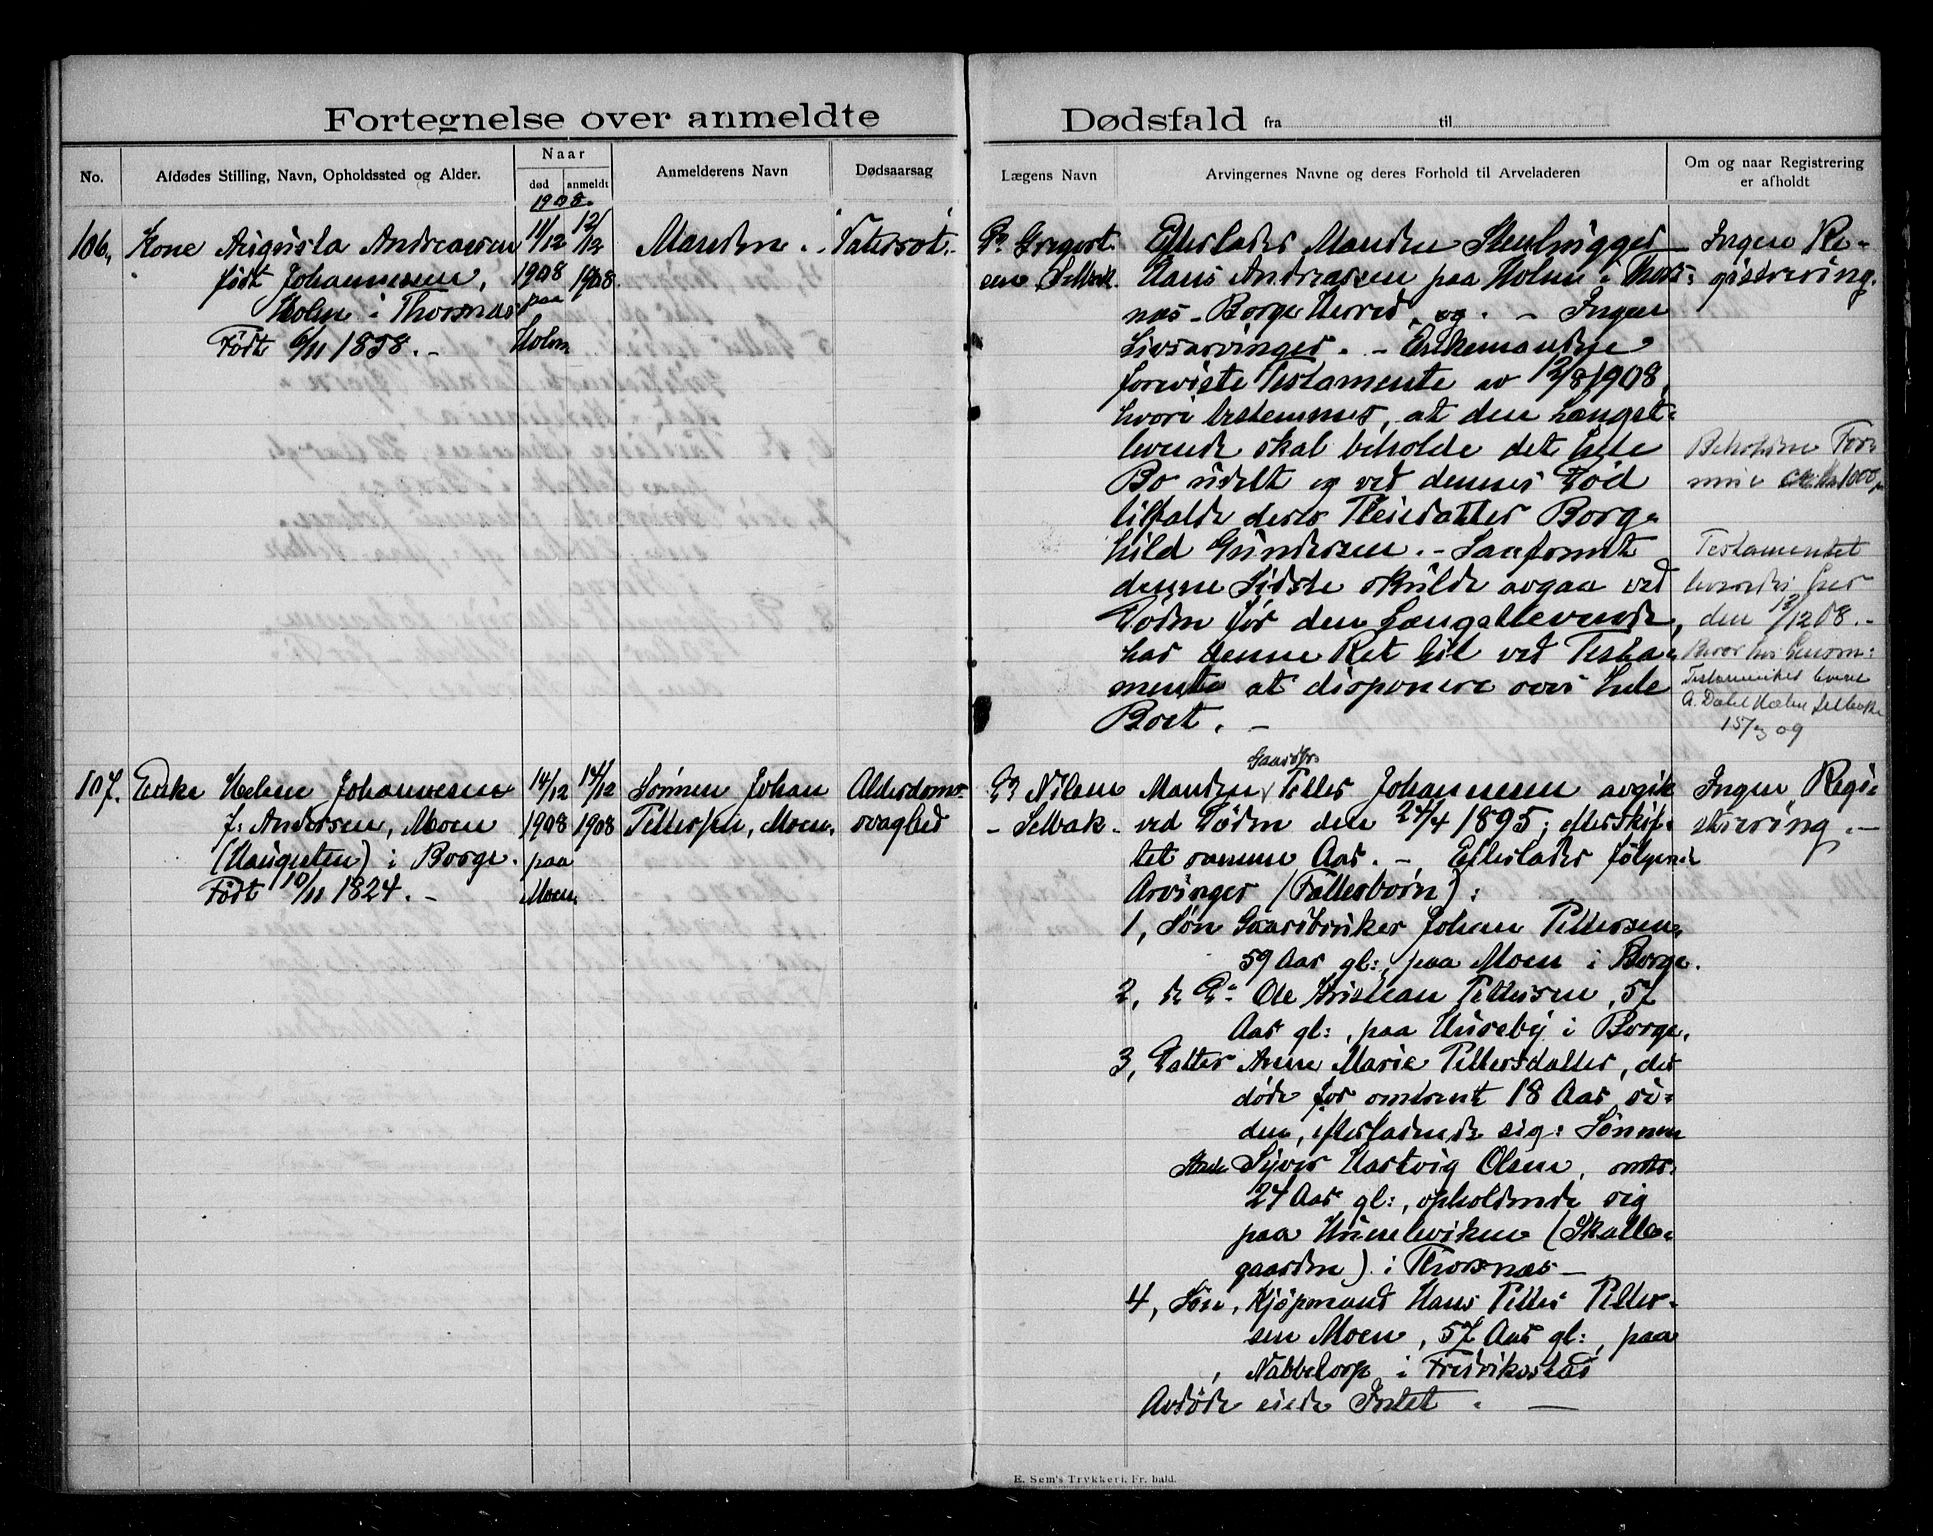 Fortegnelse over anmeldte Dødsfald fra til
No.
Afdødes Stilling, Navn, Opholdssted og Alder.
Naar
død
anmeldt
Anmelderens Navn
Dødsaarsag
Lægens Navn
Arvingernes Navne og deres Forhold til Arveladeren
Om og naar Registrering
er afholdt
1908.
106, Kone Augusta Andreassen
født Johannessen,
Holm i Thorsnæs
Født 6/11 1858. -
11/12
1908
paa
Holm
12/12
1908.
Manden.
Vatersot.
Dr. Gregert-
sen Selbak.
Efterlader Manden Stenhugger
Hans Andreassen paa Holm i Thors-
næs - Borge Herred, og. - Ingen
Livsarvinger. - Enkemanden
foreviste Testamente av 12/8 1908,
hvori bestemmes, at den længst-
levende skal beholde det hele
Bo udelt og ved dennes Død
tilfalde deres Pleiedatter Borg-
hild Gundersen. - Saafremt
denne Sidste skulde avgaa ved
Døden før den Længstlevende,
har denne Ret til ved Testa-
mente at disponere over hele
Boet. -
Ingen Re-
gistrering.
Beholdne For-
mue ca Kr 1000,
Testamentet
her
den 12/12 08. -
15/3 09
107. Enke Helene Johannesen
f: Andersen, Moen
(Haugesten) i Borge.
Født 10/11 1824. -
14/12
1908
paa
Moen.
14/12
1908
Sønnen Johan
Pettersen, Moen.
Alderdoms-
svaghed
Dr Nilsen
- Selbak -
Gaardbr.
Manden, Petter Johannesen avgik
ved Døden den 24/4 1895; efter skif-
tet samme Aar. - Efterlader følgende
Arvinger (Fællesbørn):
1, Søn Gaardbruker Johan Pettersen,
59 Aar gl:, paa Moen i Borge.
2, do Do Ole Kristian Pettersen, 57
Aar gl:, paa Huseby i Borge.
3, Datter Anne Marie Pettersdatter, der
døde for omtrent 18 Aar si-
den, efterladende sig: Sønnen
Syver Hartvig Olsen, omtr.
24 Aar gl:, opholdende sig
paa Hunelviken (Skalle-
gaarden) i Thorsnæs -
4, Søn, Kjøpmand Hans Petter Petter-
sen Moen, 57 Aar gl:, paa
Nabbetorp i Fredrikstad
Avdøde eiede Intet. -
Ingen Regi-
strering. -
E. Sem's Trykkeri, Fr. hald.